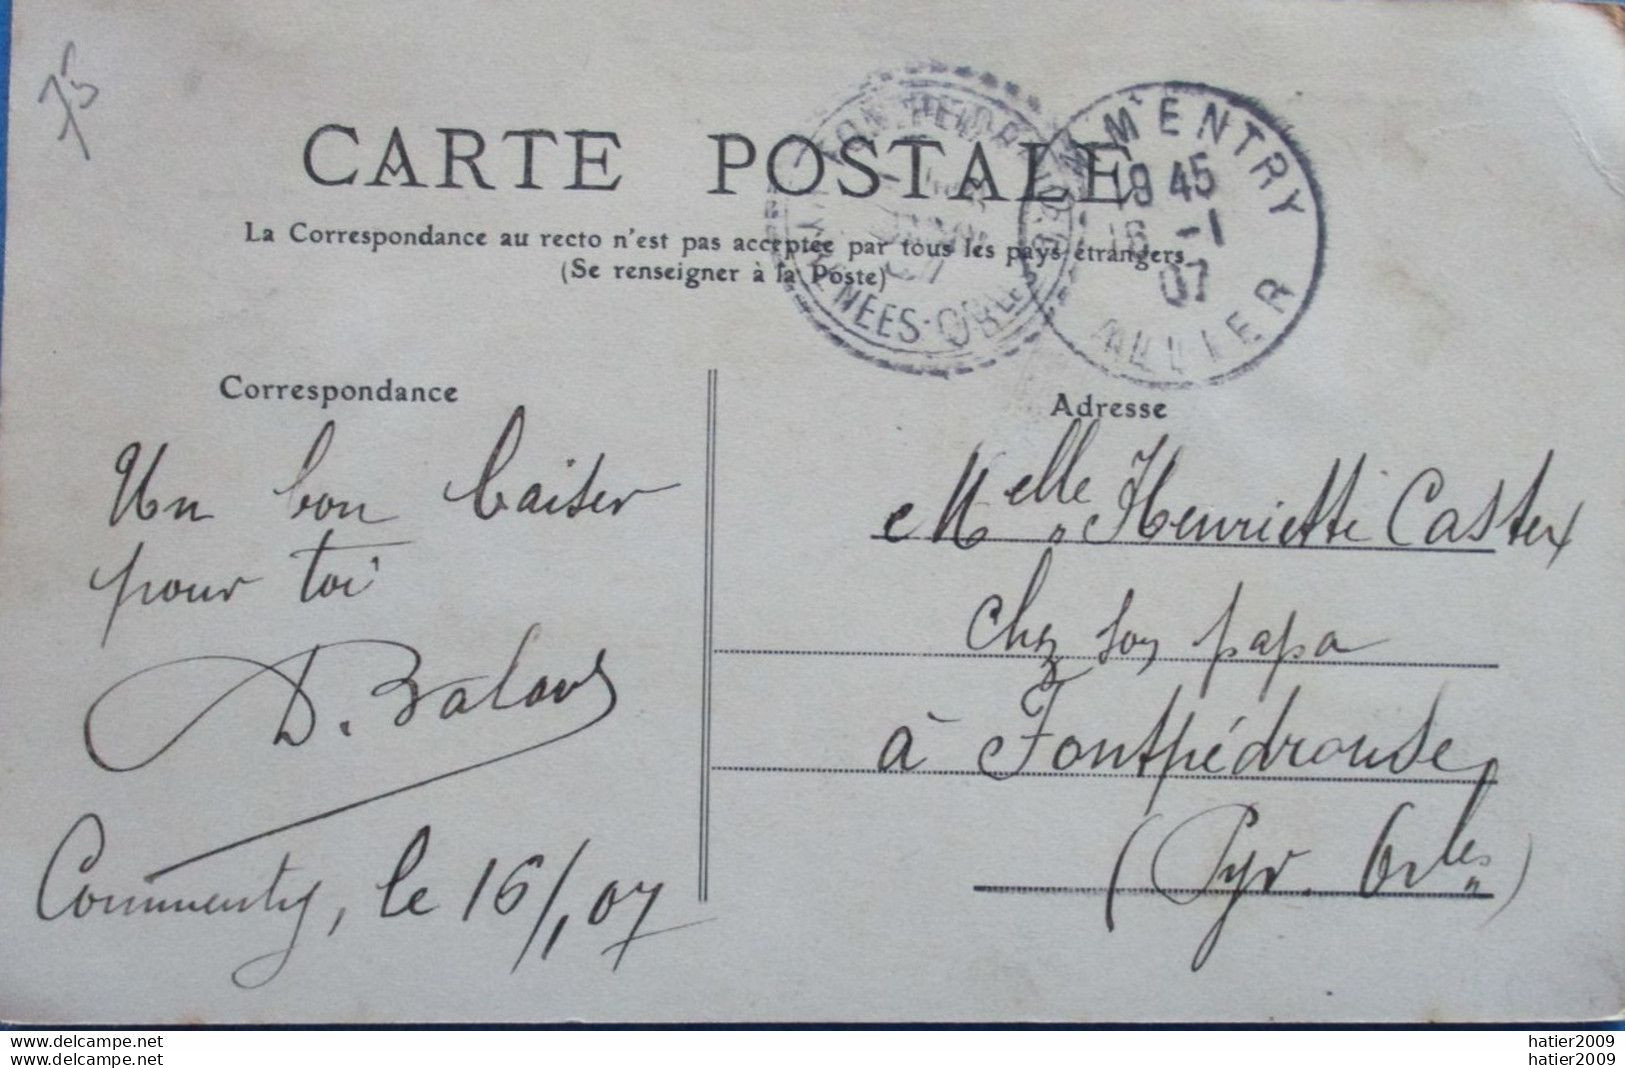 75
CARTE POSTALE
La Correspondance au recto n'est pas acceptée par tous les pays étrangers
(Se renseigner à la Poste)
MMENTRY
19 45
16 -1
07
ALLIER
NÉES-ORLES
07
Correspondance
Un bon baiser
pour toi
D. Balous
Commentry, le 16/1, 07
Adresse
Melle Henriette Castex
chez son papa
à Fontpédrouse
(Pyr. Orles)
www.delcampe.net
www.delcampe.net
hatier2009
hatier2009